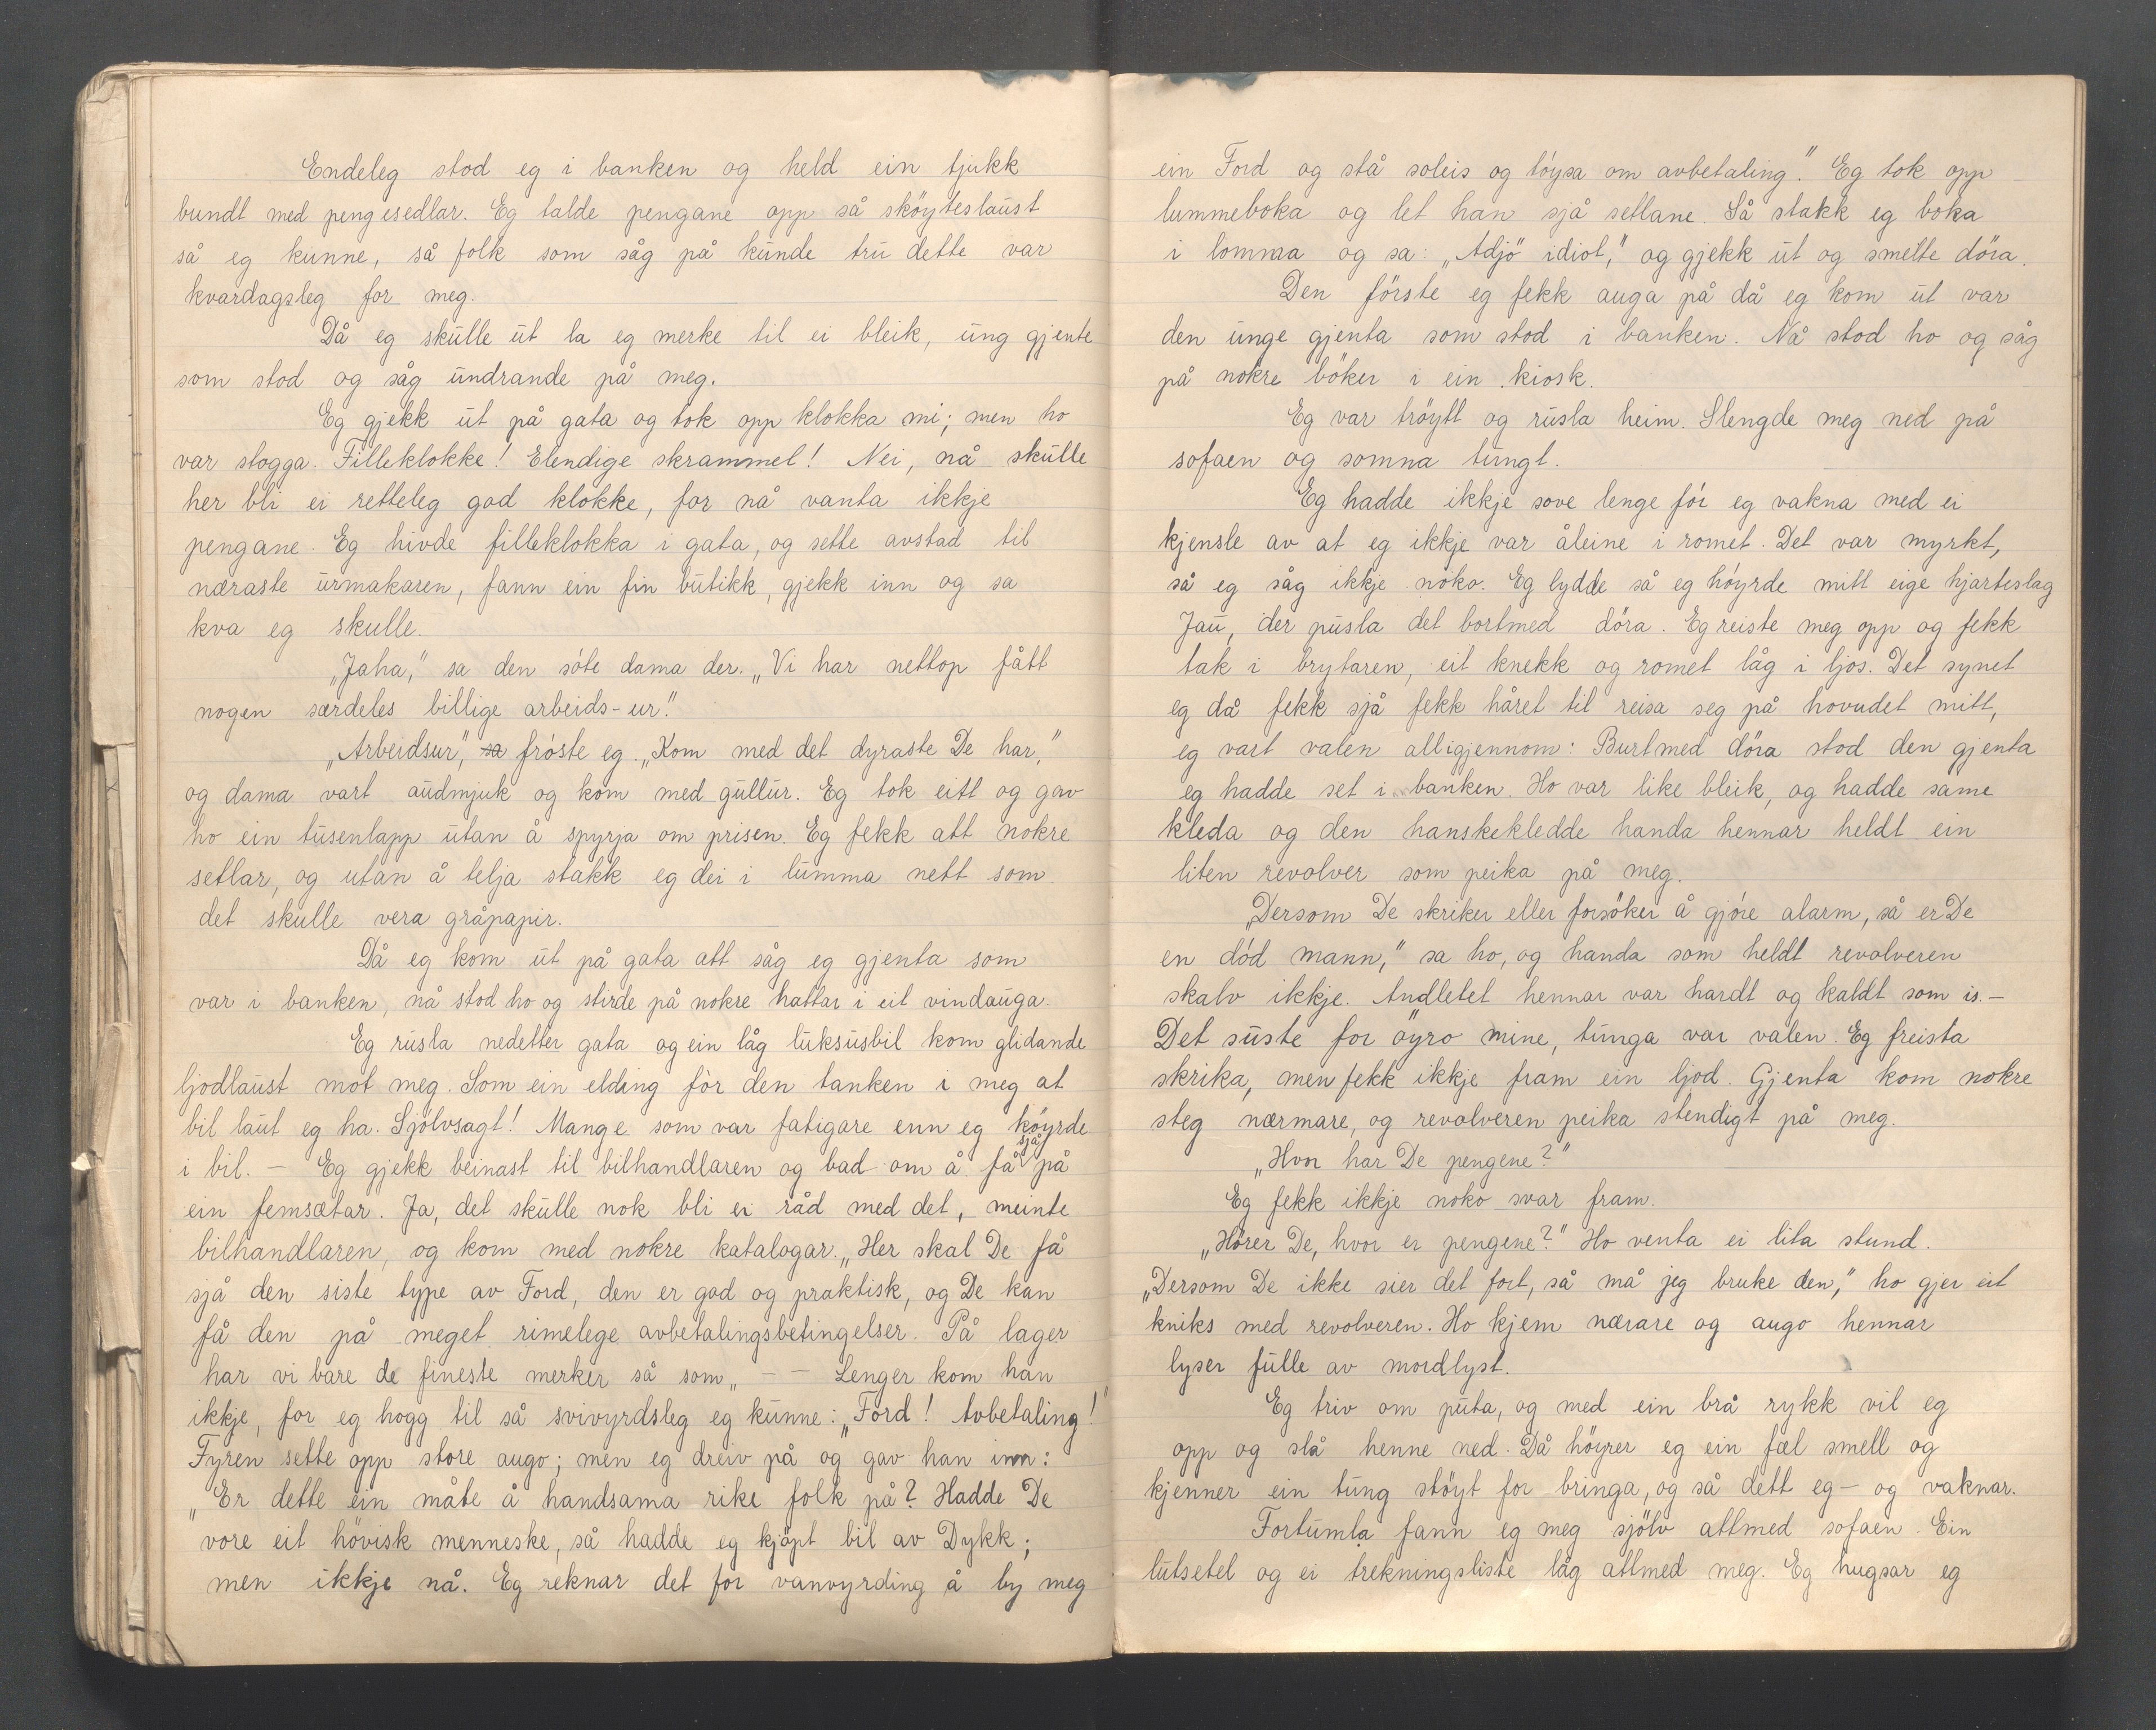 Endeleg stod eg i banken og held ein tjukk
bundt med pengesedlar. Eg talde pengane opp så sköyteslaust
så eg kunne, så folk som såg på kunde tru dette var
kvardagsleg for meg.
Då eg skulle ut la eg merke til ei bleik, ung gjente
som stod og såg undrande på meg.
Eg gjekk ut på gata og tok opp klokka mi; men ho
var stogga. Filleklokke! Elendige skrammel! Nei, nå skulle
her bli ei retteleg god klokke, for nå vanta ikkje
pengane. Eg hivde filleklokka i gata, og sette avstad til
næraste urmakaren, fann ein fin butikk, gjekk inn og sa
kva eg skulle.
„Jaha,“ sa den söte dama der. „Vi har nettop fått
nogen særdeles billige arbeids-ur.“
„Arbeidsur“, sa fröste eg. „Kom med det dyraste De har,“
og dama vart audmjuk og kom med gullur. Eg tok eitt og gav
ho ein tusenlapp utan å spyrja om prisen. Eg fekk att nokre
setlar, og utan å telja stakk eg dei i lumma nett som
det skulle vera gråpapir.
Då eg kom ut på gata att såg eg gjenta som
var i banken, nå stod ho og stirde på nokre hattar i eit vindauga.
Eg rusla nedetter gata og ein låg luksusbil kom glidande
ljodlaust mot meg. Som ein elding fór den tanken i meg at
bil laut eg ha. Sjölvsagt! Mange som var fatigare enn eg köyrde
i bil. — Eg gjekk beinast til bilhandlaren og bad om å få sjå på
ein femsætar. Ja, det skulle nok bli ei råd med det, meinte
bilhandlaren, og kom med nokre katalogar. „Her skal De få
sjå den siste type av Ford, den er god og praktisk, og De kan
få den på meget rimelege avbetalingsbetingelser. På lager
har vi bare de fineste merker så som„ — — Lenger kom han
ikkje, for eg hogg til så svivyrdsleg eg kunne: „Ford! Avbetaling!“
Fyren sette opp store augo; men eg dreiv på og gav han inn:
„Er dette ein måte å handsama rike folk på? Hadde De
vore eit hövisk menneske, så hadde eg kjöpt bil av Dykk;
men ikkje nå. Eg reknar det for vanvyrding å by meg
ein Ford og stå soleis og töysa om avbetaling“. Eg tok opp
lummeboka og let han sjå setlane. Så stakk eg boka
i lomma og sa: „Adjö idiot,“ og gjekk ut og smelte döra.
Den förste eg fekk auga på då eg kom ut var
den unge gjenta som stod i banken. Nå stod ho og såg
på nokre böker i ein kiosk.
Eg var tröytt og rusla heim. Slengde meg ned på
sofaen og somna tungt.
Eg hadde ikkje sove lenge för eg vakna med ei
kjensle av at eg ikkje var åleine i romet. Det var myrkt,
så eg såg ikkje noko. Eg lydde så eg höyrde mitt eige hjarteslag
Jau, der pusla det bortmed döra. Eg reiste meg opp og fekk
tak i brytaren, eit knekk og romet låg i ljos. Det synet
eg då fekk sjå fekk håret til reisa seg på hovudet mitt,
eg vart valen alligjennom: Burtmed döra stod den gjenta
eg hadde set i banken. Ho var like bleik, og hadde same
kleda og den hanskekledde handa hennar heldt ein
liten revolver som peika på meg.
„Dersom De skriker eller forsöker å gjöre alarm, så er De
en död mann,“ sa ho, og handa som heldt revolveren
skalv ikkje. Andletet hennar var hardt og kaldt som is. —
Det suste for öyro mine, tunga var valen. Eg freista
skrika, men fekk ikkje fram ein ljod. Gjenta kom nokre
steg nærmare, og revolveren peika stendigt på meg.
„Hvor har De pengene?“
Eg fekk ikkje noko svar fram.
„Hörer De, hvor er pengene?“ Ho venta ei lita stund.
„Dersom De ikke sier det fort, så må jeg bruke den,“ ho gjer eit
kniks med revolveren. Ho kjem nærare og augo hennar
lyser fulle av mordlyst.
Eg triv om puta, og med ein brå rykk vil eg
opp og slå henne ned. Då höyrer eg ein fæl smell og
kjenner ein tung stöyt for bringa, og så dett eg — og vaknar.
Fortumla fann eg meg sjölv attmed sofaen. Ein
lutsetel og ei trekningsliste låg attmed meg. Eg hugsar eg